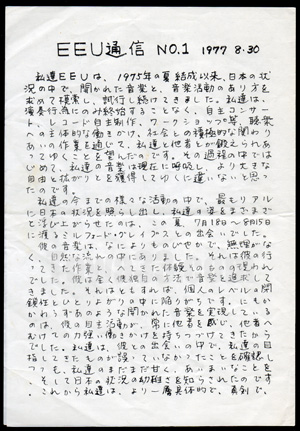 EEU通信 NO.1 1977 8.30
私達EEUは、1975年の夏結成以来、日本の状
況の中で、開かれた音楽と、音楽活動のあり方を
求めて模索し、試行し続けてきました。私達は、
演奏行為にのみ終始することなく、自主コンサー
ト、レコード自主制作、ワークショップ等、聴衆
への主体的な働きかけ、社会との積極的な関わり
あいの作業を通じて、私達と他者とが鍛えられあ
ってゆくことを望んだのです。その過程の中では
じめて、私達の音楽は現在に呼吸し、より大きな
自由と拡がりとを獲得してゆくに違いないと思っ
たのです。
私達の今までの様々な活動の中で、最もリアル
に日本の状況を照らし出し、私達の姿をまざまざ
と浮びあがらせたのは、この夏、7月18日〜8月15日
に渡るミルフォード・グレイブスとの出会いでした。
彼の音楽は、なによりものびやかで、無理がな
く、自然な流れの中にありました。それは彼の行
ってきた作業と、へてきた体験そのものの現われ
でした。彼は全く彼独自の方法で音楽を追求して
きました。それはともすれば、個人のレベルの閉
鎖性とひとりよがりの中に陥りがちです。にもか
かわらずあのような開かれた音楽を実現している
のは、彼の自主活動が、常に他者を感い、他者へ
むけての力強い働きかけを持ちつづけてきたから
でした。私達は、彼との出会いの中で、私達の目
指してきたものが誤っていなかったことを確認し
つつも、私達のまだまだ甘く、あいまいなことを、
そして日本の状況の幼稚さを知らされたのです。
これから私達は、より一層具体的で、真剣で、